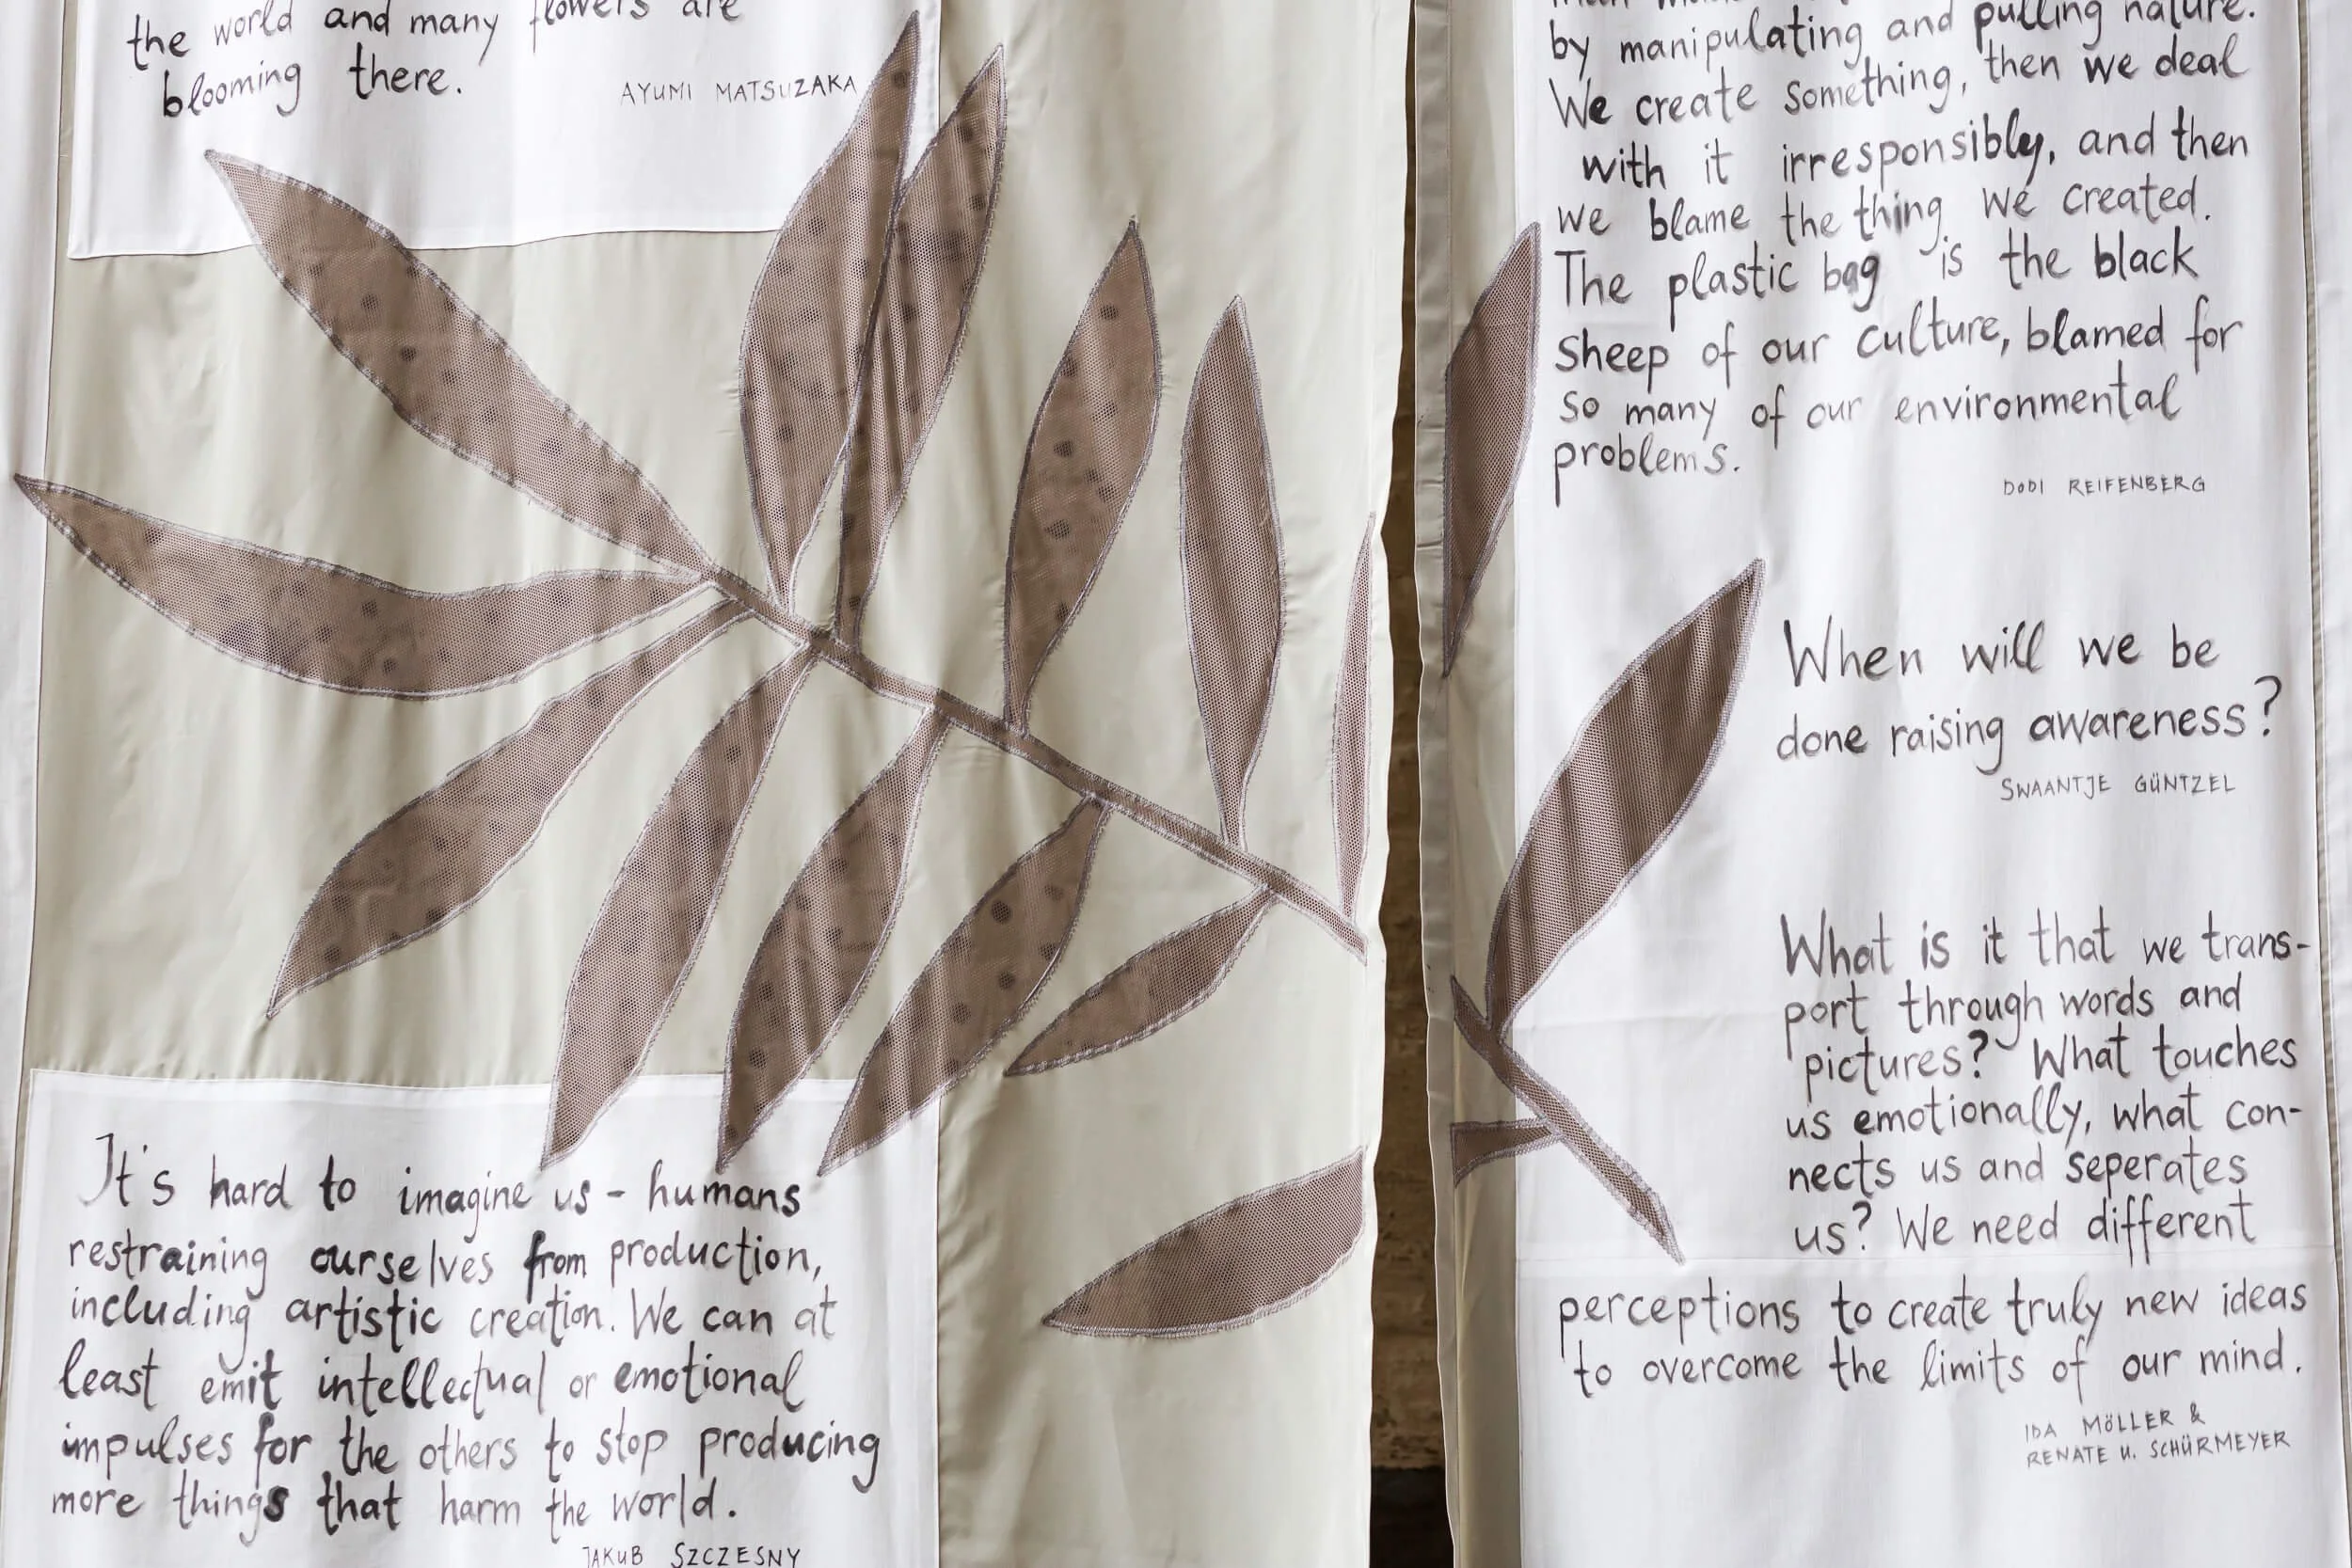 the world and many flowers are
blooming there.
AYUMI MATSUZAKA
It's hard to imagine us - humans
restraining ourselves from production,
including artistic creation. We can at
least emit intellectual or emotional
impulses for the others to stop producing
more things that harm the world.
JAKUB SZCZESNY
by manipulating and pulling nature.
We create something, then we deal
with it irresponsibly, and then
we blame the thing we created.
The plastic bag is the black
sheep of our culture, blamed for
so many of our environmental
problems.
DODI REIFENBERG
When will we be
done raising awareness?
SWAANTJE GÜNTZEL
What is it that we trans-
port through words and
pictures? What touches
us emotionally, what con-
nects us and seperates
us? We need different
perceptions to create truly new ideas
to overcome the limits of our mind.
IDA MÖLLER &
RENATE U. SCHÜRMEYER